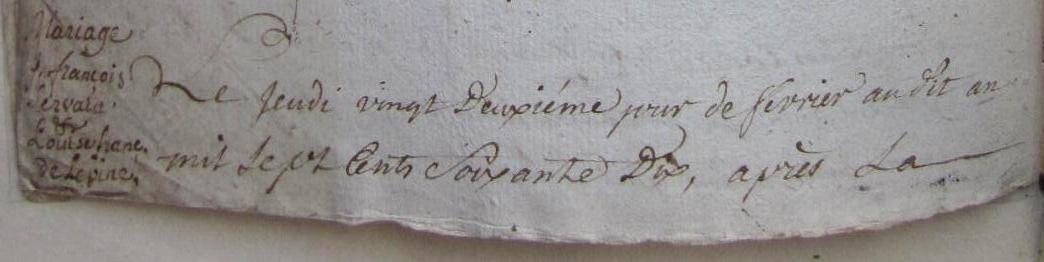 Mariage
françois
Servais
&
Louise franc.
de Lepine.
Le Jeudi vingt Deuxiéme jour de fevrier audit an
mil Sept Cents Soixante Dix, après La